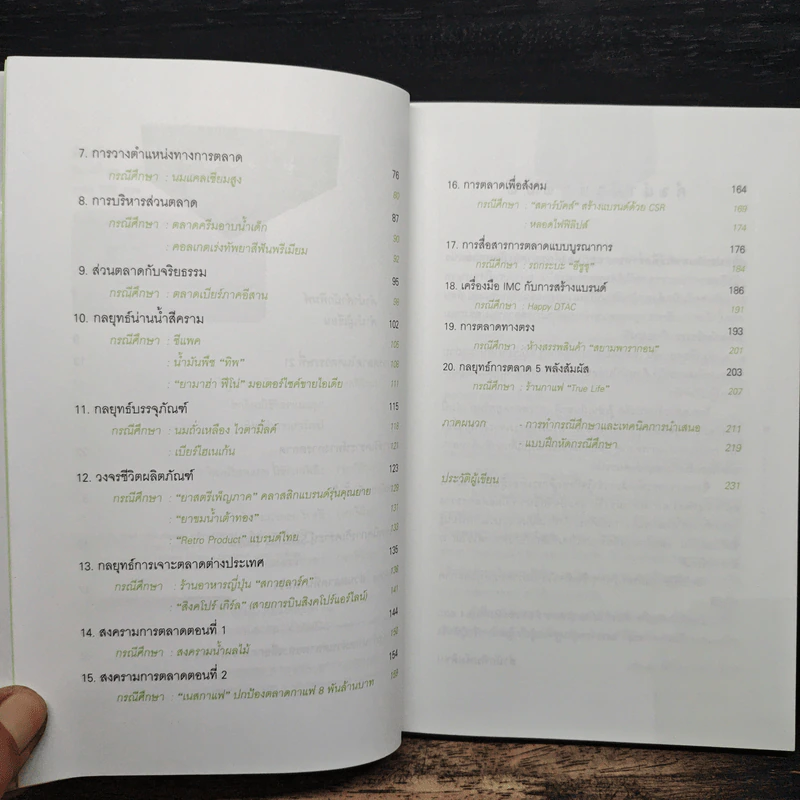 7. การวางตำแหน่งทางการตลาด 76
กรณีศึกษา : นมแคลเซียมสูง 80
8. การบริหารส่วนตลาด 87
กรณีศึกษา : ตลาดครีมอาบน้ำเด็ก 90
: คอลเกตเร่งทัพยาสีฟันพรีเมียม 92
9. ส่วนตลาดกับจริยธรรม 95
กรณีศึกษา : ตลาดเบียร์ภาคอีสาน 98
10. กลยุทธ์น่านน้ำสีคราม 102
กรณีศึกษา : ซีแพค 105
: น้ำมันพืช “ทิพ” 108
: “ยามาฮ่า ฟีโน่” มอเตอร์ไซค์ขายไอเดีย 111
11. กลยุทธ์บรรจุภัณฑ์ 115
กรณีศึกษา : นมถั่วเหลือง ไวตามิ้ลค์ 118
: เบียร์ไฮเนเก้น 121
12. วงจรชีวิตผลิตภัณฑ์ 123
กรณีศึกษา : “ยาสตรีเพ็ญภาค” คลาสสิกแบรนด์รุ่นคุณยาย 129
: “ยาขมน้ำเต้าทอง” 131
: “Retro Product” แบรนด์ไทย 132
13. กลยุทธ์การเจาะตลาดต่างประเทศ 135
กรณีศึกษา : ร้านอาหารญี่ปุ่น “สกายลาร์ค” 138
: “สิงคโปร์ เกิร์ล” (สายการบินสิงคโปร์แอร์ไลน์) 141
14. สงครามการตลาดตอนที่ 1 144
กรณีศึกษา : สงครามน้ำผลไม้ 150
15. สงครามการตลาดตอนที่ 2 154
กรณีศึกษา : “เนสกาแฟ” ปกป้องตลาดกาแฟ 8 พันล้านบาท
16. การตลาดเพื่อสังคม 164
กรณีศึกษา : “สตาร์บัคส์” สร้างแบรนด์ด้วย CSR 169
หลอดไฟฟิลิปส์ 174
17. การสื่อสารการตลาดแบบบูรณาการ 176
กรณีศึกษา : รถกระบะ “อีซูซุ” 184
18. เครื่องมือ IMC กับการสร้างแบรนด์ 186
กรณีศึกษา : Happy DTAC 191
19. การตลาดทางตรง 193
กรณีศึกษา : ห้างสรรพสินค้า “สยามพารากอน” 201
20. กลยุทธ์การตลาด 5 พลังสัมผัส 203
กรณีศึกษา : ร้านกาแฟ “True Life” 207
ภาคผนวก - การทำกรณีศึกษาและเทคนิคการนำเสนอ 211
- แบบฝึกหัดกรณีศึกษา 219
ประวัติผู้เขียน 231